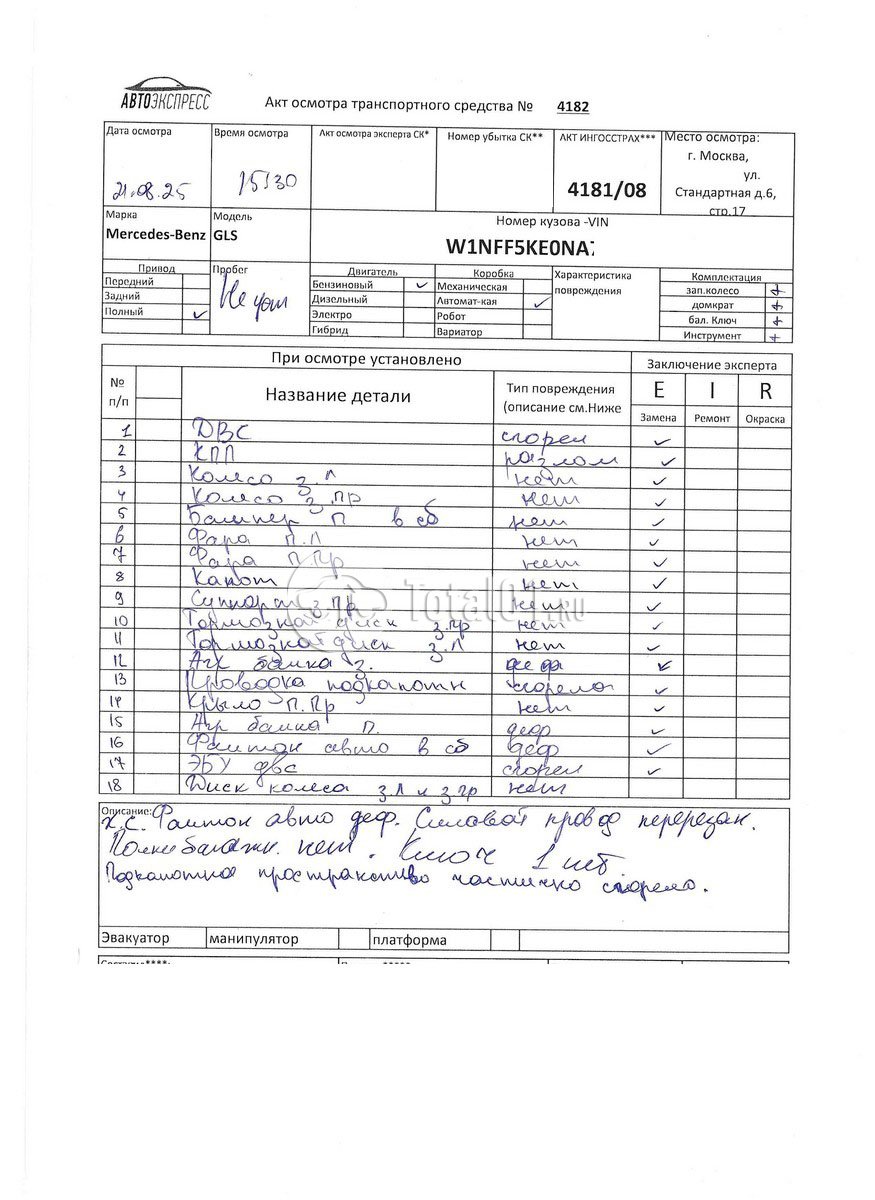 АВТОЭКСПРЕСС
Акт осмотра транспортного средства № 4182
Дата осмотра Время осмотра Акт осмотра эксперта СК* Номер убытка СК** АКТ ИНГОССТРАХ*** Место осмотра:
г. Москва,
ул.
21.08.25 15:30 4181/08 Стандартная д.6,
стр.17
Марка Модель Номер кузова -VIN
Mercedes-Benz GLS W1NFF5KE0NA
Привод Пробег Двигатель Коробка Характеристика повреждения Комплектация
Передний Бензиновый ✓ Механическая зап.колесо +
Задний Не уст Дизельный Автомат-кая ✓ домкрат +
Полный ✓ Электро Робот бал. Ключ +
Гибрид Вариатор Инструмент +
При осмотре установлено Заключение эксперта
№ п/п Название детали Тип повреждения (описание см.Ниже E I R
Замена Ремонт Окраска
1 ДВС сгорел ✓
2 КПП разлом ✓
3 Колесо з.Л нет ✓
4 Колесо з.пр нет ✓
5 Бампер П в сб нет ✓
6 Фара П.Л нет ✓
7 Фара П.Пр нет ✓
8 Капот нет ✓
9 Суппорт з.Пр нет ✓
10 Тормозной диск з.пр нет ✓
11 Тормозной диск з.Л нет ✓
12 балка з. деф ✓
13 Проводка подкапотн сгорела ✓
14 Крыло П.Пр нет ✓
15 балка П. деф ✓
16 авто в сб деф ✓
17 ЭБУ двс сгорел ✓
18 Диск колеса з.Л и з.пр нет
Total01.RU
Описание: Х.С. авто деф. Силовой провод перерезан.
Полки багажн. нет. Ключ 1 шт
Подкапотное пространство частично сгорело.
Эвакуатор манипулятор платформа